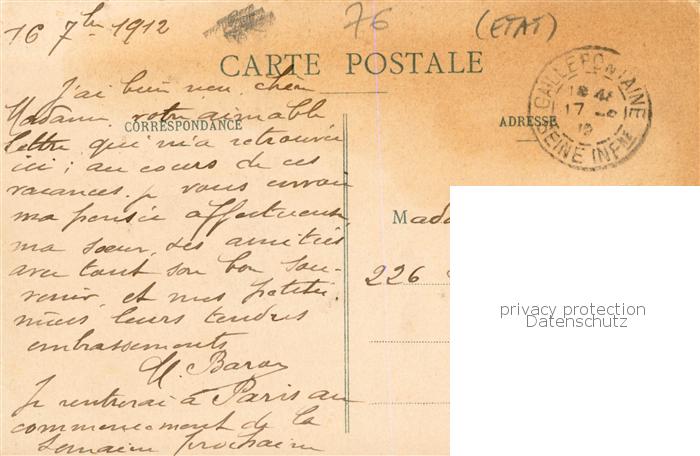 16 7bre 1912
76
(ETAT)
CARTE POSTALE
CORRESPONDANCE
ADRESSE
GAILLEFONTAINE
17
SEINE INFRE
J'ai bien reçu, chère
Madame, votre aimable
lettre qui m'a retrouvée
ici ; au cours de ces
vacances, je vous envoie
ma pensée affectueuse,
ma sœur, ses amitiés
avec tout son bon sou-
venir, et mes petites
nièces leurs tendres
embrassements
M. Baron
Je rentrerai à Paris au
commencement de la
semaine prochaine
Mada
226
privacy protection
Datenschutz